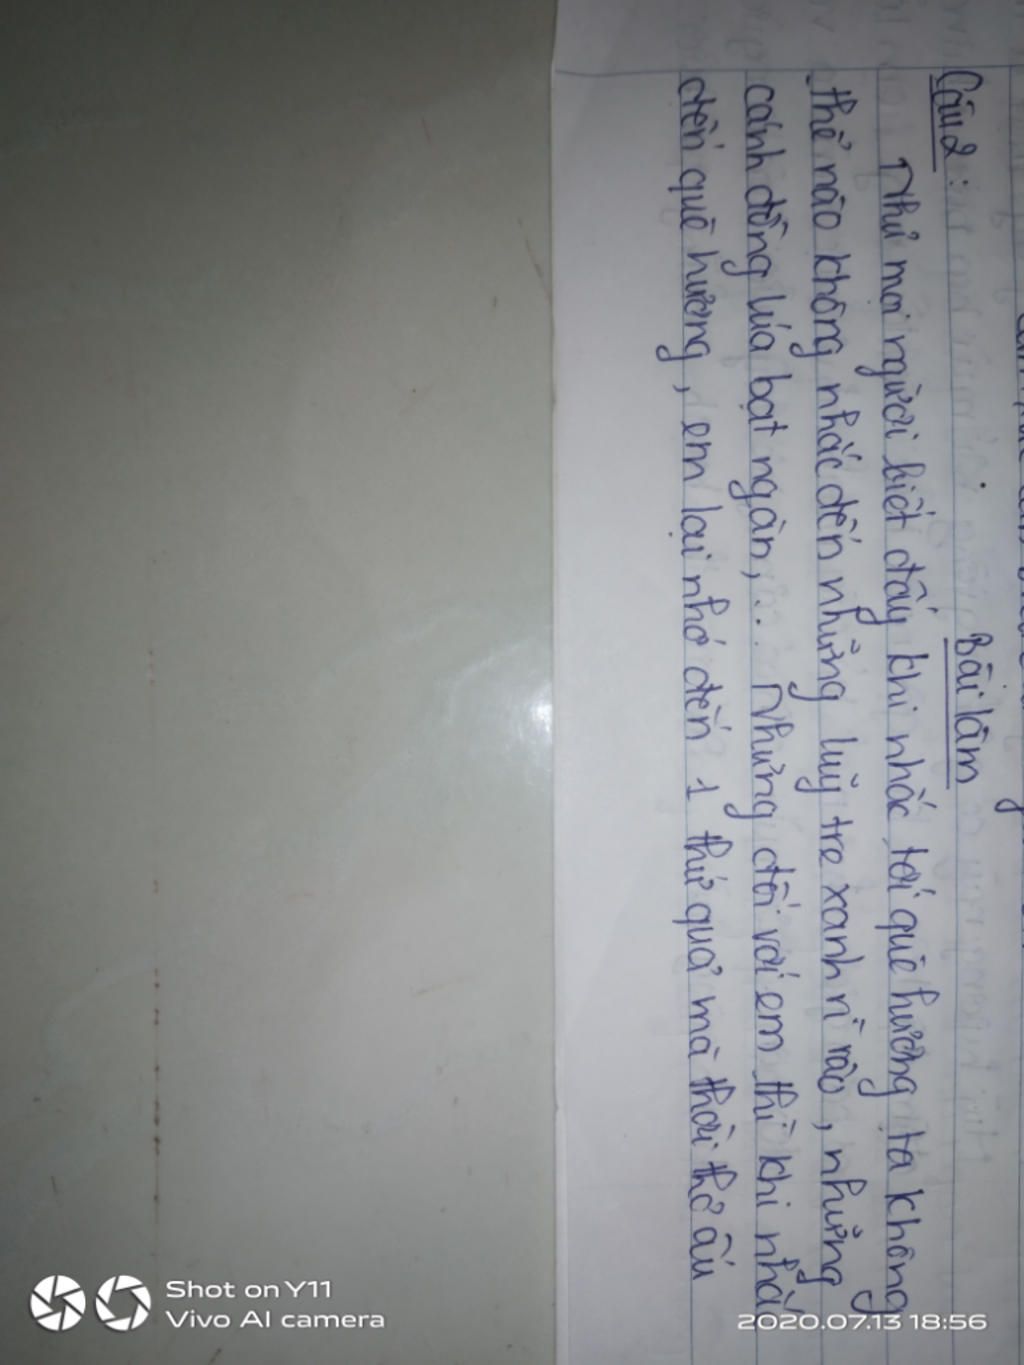 Bài làm
Câu 2:
Như mọi người biết đấy khi nhắc tới quê hương ta không
thể nào không nhắc đến những luỹ tre xanh rì rào, những
cánh đồng lúa bạt ngàn,... Nhưng đối với em thì khi nhắc
đến quê hương, em lại nhớ đến 1 thứ quả mà thời thơ ấu
Shot on Y11
Vivo AI camera
2020.07.13 18:56